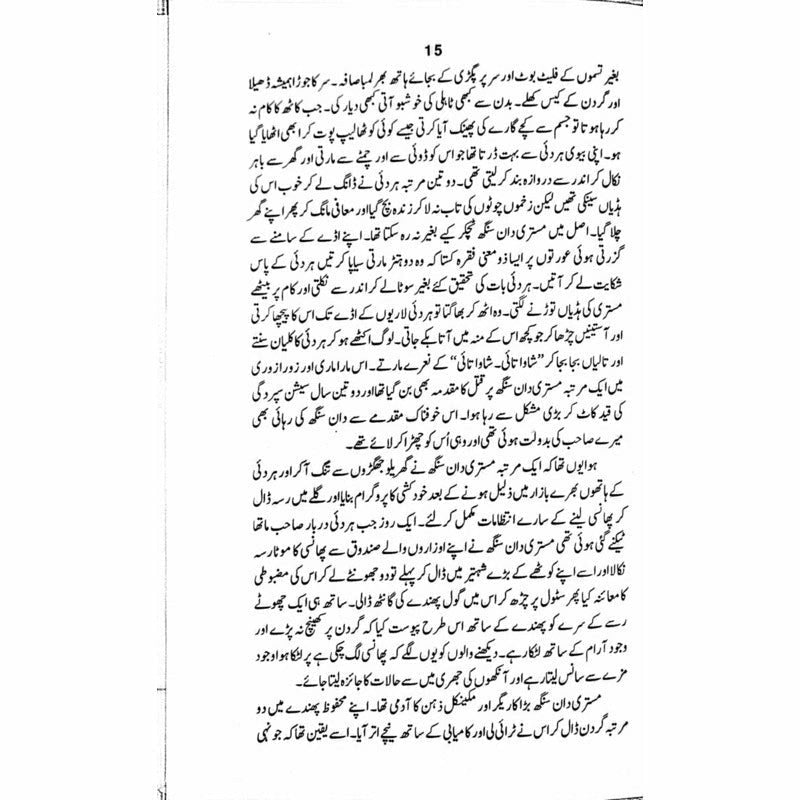 15
بغیر تسموں کے فلیٹ بوٹ اور سر پر پگڑی کے بجائے ہاتھ بھر لمبا صافہ۔ سر کا جوڑا ہمیشہ ڈھیلا
اور گردن کے کیس کھلے۔ بدن سے کبھی ٹاہلی کی خوشبو آتی کبھی دیار کی۔ جب کاٹھ کا کام نہ
کر رہا ہوتا تو جسم سے کچے گارے کی پھینک آیا کرتی جیسے کوئی کوٹھا لیپ پوت کر ابھی اٹھایا گیا
ہو۔ اپنی بیوی ہردئی سے بہت ڈرتا تھا جو اس کو ڈوئی سے اور چمٹے سے مارتی اور گھر سے باہر
نکال کر اندر سے دروازہ بند کر لیتی تھی۔ دو تین مرتبہ ہردئی نے ڈانگ لے کر خوب اس کی
ہڈیاں سینکی تھیں لیکن زخموں چوٹوں کی تاب نہ لا کر زندہ بچ گیا اور معافی مانگ کر پھر اپنے گھر
چلا گیا۔ اصل میں مستری دان سنگھ ٹچکر کیے بغیر نہ رہ سکتا تھا۔ اپنے اڈے کے سامنے سے
گزرتی ہوئی عورتوں پر ایسا ذو معنی فقرہ کستا کہ وہ دوہتڑ مارتی سیاپا کرتیں ہردئی کے پاس
شکایت لے کر آتیں۔ ہردئی بات کی تحقیق کئے بغیر سوٹا لے کر اندر سے نکلتی اور کام پر بیٹھے
مستری کی ہڈیاں توڑنے لگتی۔ وہ اٹھ کر بھاگتا تو ہردئی لاریوں کے اڈے تک اس کا پیچھا کرتی
اور آستینیں چڑھا کر جو کچھ اس کے منہ میں آتا بکے جاتی۔ لوگ اکٹھے ہو کر ہردئی کا کلیان سنتے
اور تالیاں بجا بجا کر ”شاوا تائی۔ شاوا تائی“ کے نعرے مارتے۔ اس مارا ماری اور زورا زوری
میں ایک مرتبہ مستری دان سنگھ پر قتل کا مقدمہ بھی بن گیا تھا اور دو تین سال سیشن سپردگی
کی قید کاٹ کر بڑی مشکل سے رہا ہوا۔ اس خوفناک مقدمے سے دان سنگھ کی رہائی بھی
میرے صاحب کی بدولت ہوئی تھی اور وہی اُس کو چھڑا کر لائے تھے۔
ہوا یوں تھا کہ ایک مرتبہ مستری دان سنگھ نے گھریلو جھگڑوں سے تنگ آ کر اور ہردئی
کے ہاتھوں بھرے بازار میں ذلیل ہونے کے بعد خودکشی کا پروگرام بنایا اور گلے میں رسہ ڈال
کر پھانسی لینے کے سارے انتظامات مکمل کر لئے۔ ایک روز جب ہردئی دربار صاحب ماتھا
ٹیکنے گئی ہوئی تھی مستری دان سنگھ نے اپنے اوزاروں والے صندوق سے پھانسی کا موٹا رسہ
نکالا اور اسے اپنے کوٹھے کے بڑے شہتیر میں ڈال کر پہلے تو دو جھونٹے لے کر اس کی مضبوطی
کا معائنہ کیا پھر سٹول پر چڑھ کر اس میں گول پھندے کی گانٹھ ڈالی۔ ساتھ ہی ایک چھوٹے
رسے کے سرے کو پھندے کے ساتھ اس طرح پیوست کیا کہ گردن پر کھینچ نہ پڑے اور
وجود آرام کے ساتھ لٹکا رہے۔ دیکھنے والوں کو یوں لگے کہ پھانسی لگ چکی ہے پر لٹکا ہوا وجود
مزے سے سانس لیتا رہے اور آنکھوں کی جھری میں سے حالات کا جائزہ لیتا جائے۔
مستری دان سنگھ بڑا کاریگر اور مکینکل ذہن کا آدمی تھا۔ اپنے محفوظ پھندے میں دو
مرتبہ گردن ڈال کر اس نے ٹرائی لی اور کامیابی کے ساتھ نیچے اتر آیا۔ اسے یقین تھا کہ جونہی